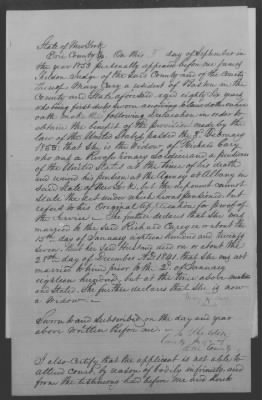 State of New York
Erie County ss On this day of September in
the year 1853 personally appeared before me James
Sheldon Judge of the Erie County and of the County
Court Mary Cary a resident of Boston in the
County and State aforesaid aged eighty six years
who being first duly sworn according to law doth make
oath make the following declaration in order to
obtain the benefit of the provision made by the
Law of the United States passed the 3d February
1853: that she is the Widow of Richard Cary
who was a Revolutionary Soldier and a pensioner
of the United States at the time of his death
and received his pension at the Agency at Albany in
said State of New York, but the deponent cannot
state the act under which he was pensioned but
refers to his Original Declaration for proof of
the Service - She further declares that she was
married to the said Richard Cary on or about the
15th day of January eighteen hundred and
that her said Husband died on or about the
28th day of December A.D. 1841. that she was not
married to him prior to the 2d of January
eighteen hundred, but at the time above
stated. She further declares that she is now
a Widow -
Sworn to and subscribed on the day and year
above written Before me. Sheldon
County Judge
Erie County
I also certify that the applicant is not able to
attend court by reason of bodily infirmity and
from the testimony had before me and